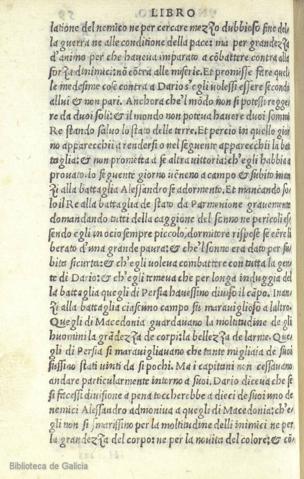 LIBRO
latione del nemico ne per cercare mezzo dubbioso fine della
la guerra ne alle conditione della pace: ma per grandezza
d'animo per che haueua imparato a cōbattere contra alla
forza d'inimici: nō cōtra alle miserie. Et promisse fare quel
le medesime cose contra a Dario s'egli uolessi essere secondo
allui & non pari. Anchora che'l mōdo non si potessi reggere
re da duoi soli: & il mondo non poteua hauere duoi sommi
Re stando saluo lo stato delle terre. Et percio in quello gior
no apparecchi a rendersi o nel seguente apparecchi la bat
taglia: & non prometta a se altra uittoria: ch'egli habbi a
prouato. lo seguente giorno uēneno a campo & subito inan
zi alla battaglia Alessandro se adormento. Et mancando so
lo il Re alla battaglia desstato da Parmenione grauemente
domandando tutti della caggione del sonno ne pericoli es
sendo egli in ocio sempre piccolo, dormitore rispose se eēre li
berato d'una grande paura: & che'l sonno era dato per su
bita sicurta: & ch'egli uoleua combattere con tutta la gen
te di Dario: & ch'egli temeua che per longa induggia del
la battaglia quegli di Persia hauessino diuiso il cāpo. Inan
zi alla battaglia ciascuno campo fu marauiglioso a l'altro.
Quegli di Macedonia guardauano la moltitudine de gli
huomini la grādezza de corpi: la bellezza de larme. Que
gli di Persia si marauigliauano che tante migliaia de suoi
fussino stati uinti da si pochi. Ma i capitani non cessauano
andare particularmente intorno a suoi. Dario diceua che se
si facessi diuisione a pena toccherebbe a dieci de suoi uno de
nemici Alessandro admoniua a quegli di Macedonia: che e
gli non si smarissino per la moltitudine delli inimici ne per
la grandezza del corpo: ne per la nouita del colore: & cō
Biblioteca de Galicia